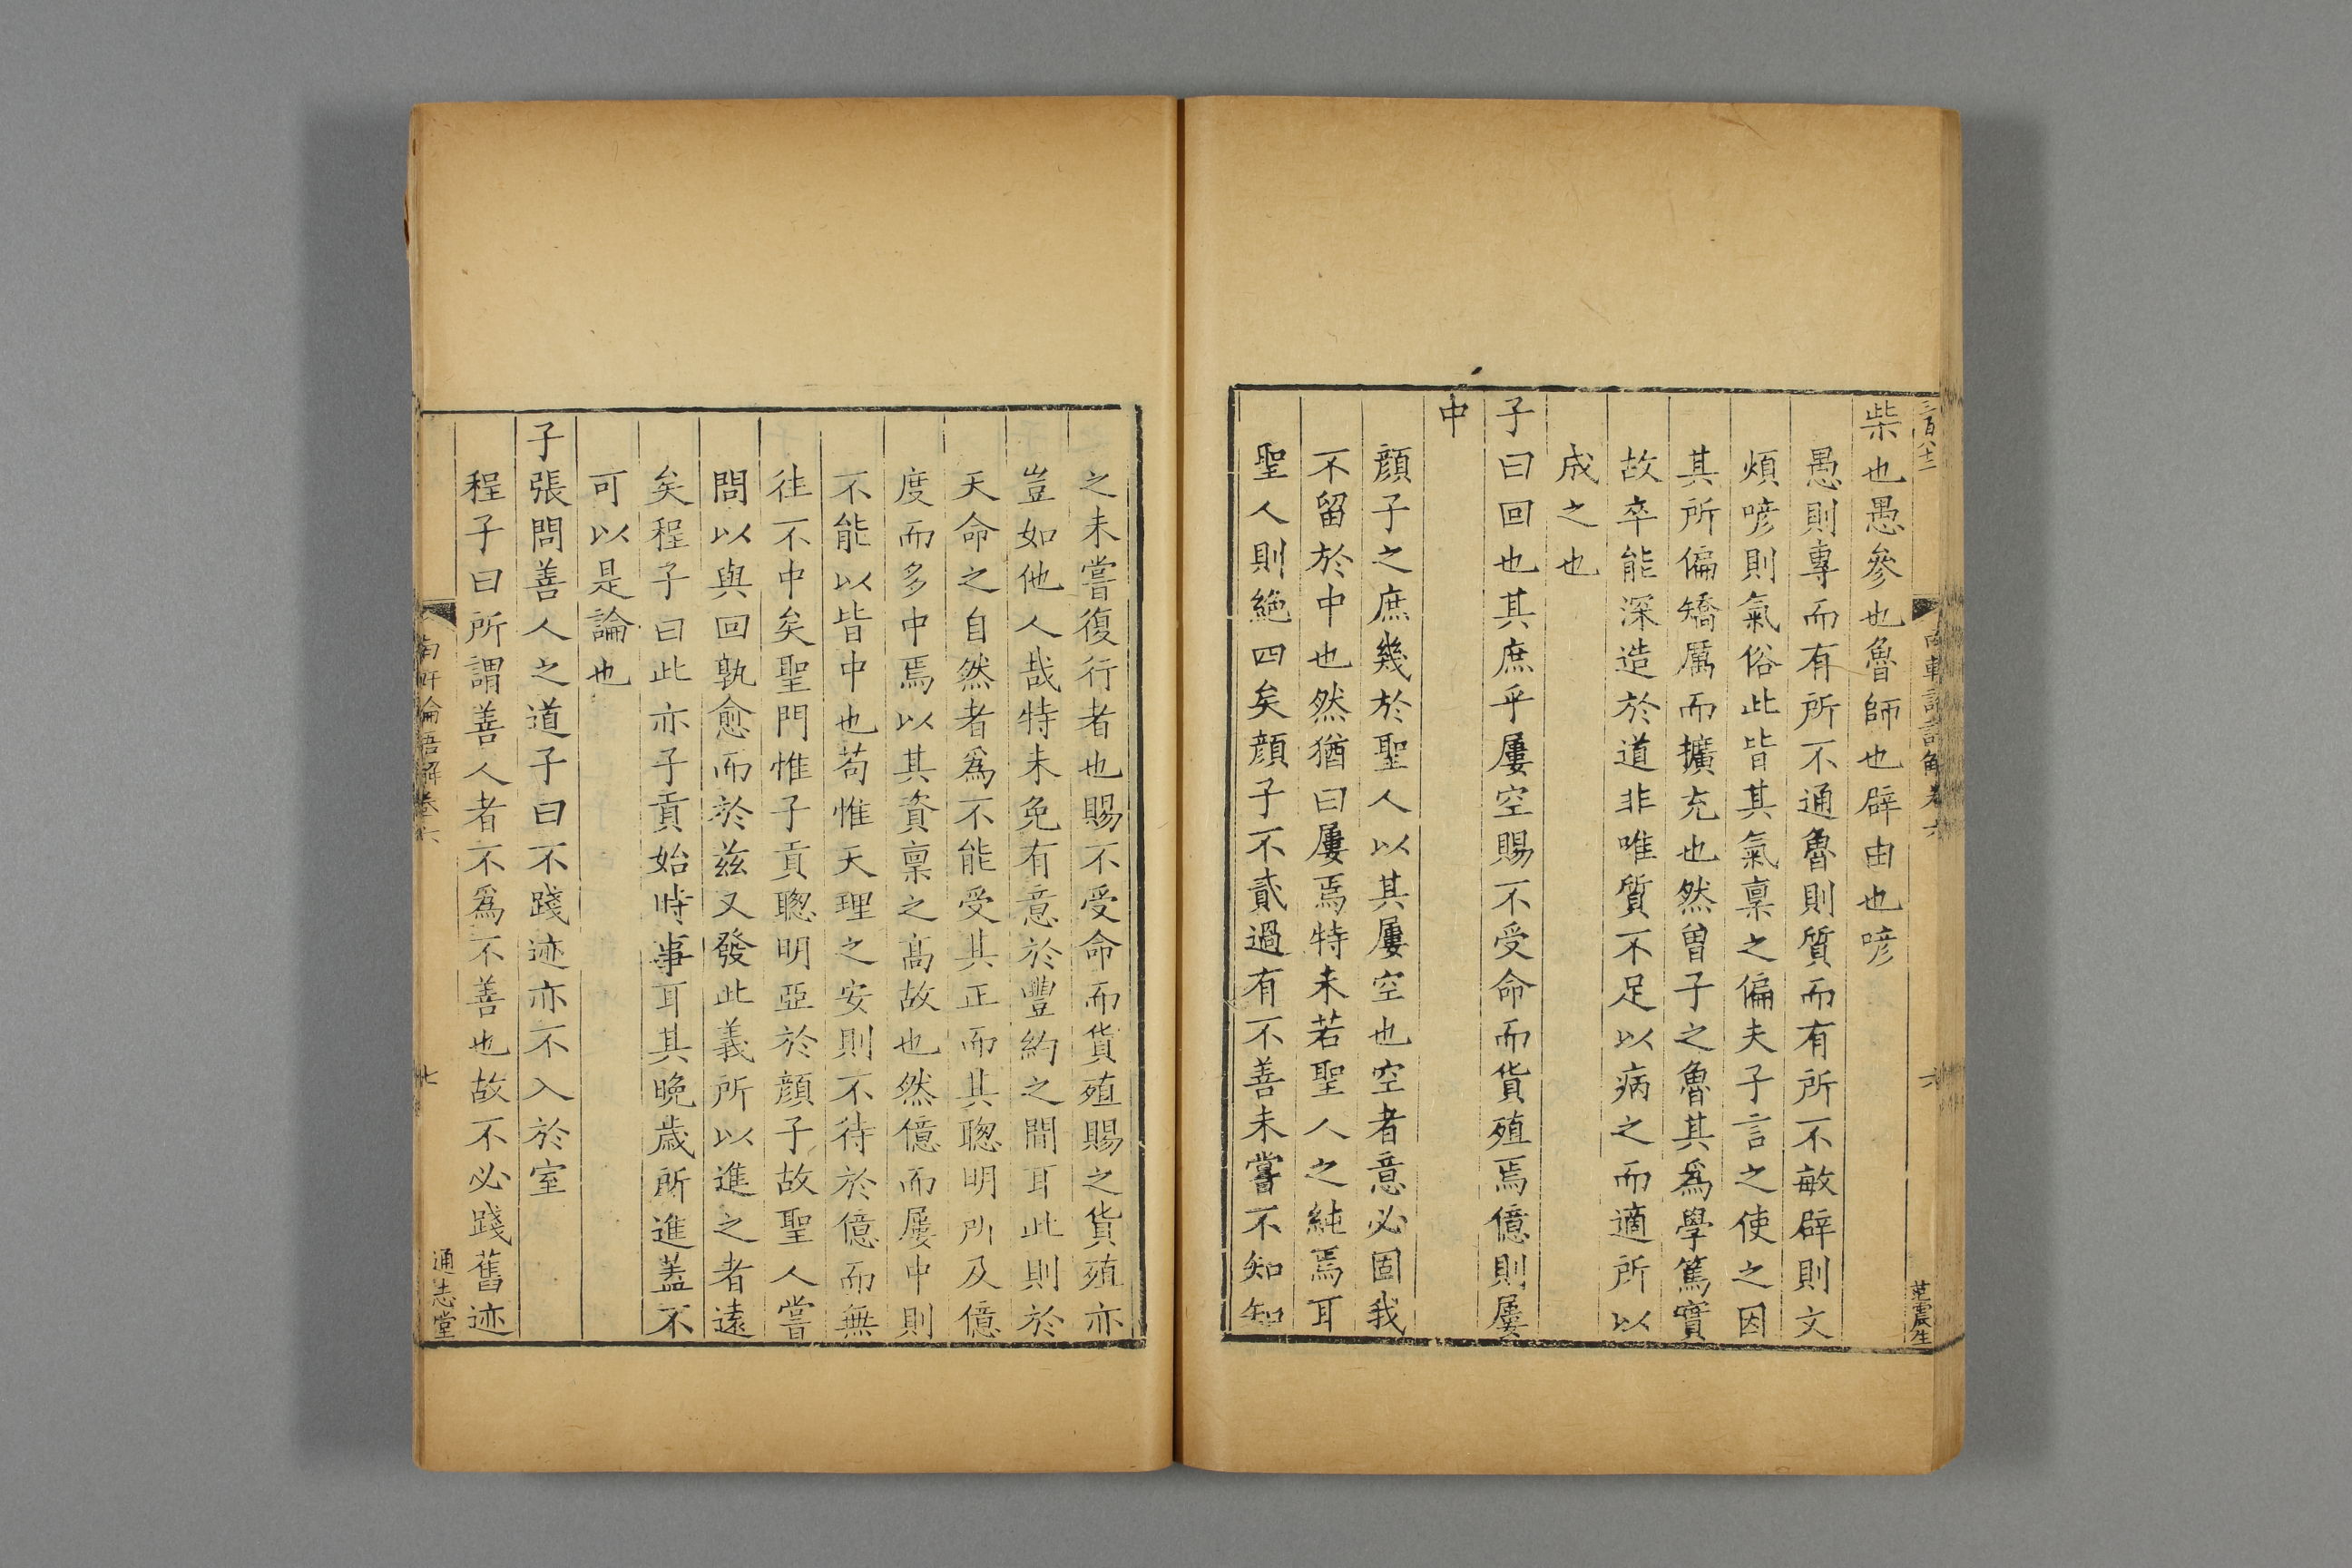 柴也愚參也魯師也辟由也喭
愚則專而有所不通魯則質而有所不敏辟則文
煩喭則氣俗此皆其氣稟之偏夫子言之使之因
其所偏矯厲而擴充也然曾子之魯其爲學篤實
故卒能深造於道非唯質不足以病之而適所以
成之也
子曰回也其庶乎屢空賜不受命而貨殖焉億則屢
中
顔子之庶幾於聖人以其屢空也空者意必固我
不留於中也然猶曰屢焉特未若聖人之純焉耳
聖人則絶四矣顔子不貳過有不善未嘗不知知
之未嘗復行者也賜不受命而貨殖賜之貨殖亦
豈如他人哉特未免有意於豐約之間耳此則於
天命之自然者爲不能受其正而其聰明所及億
度而多中焉以其資稟之高故也然億而屢中則
不能以皆中也苟惟天理之安則不待於億而無
往不中矣聖門惟子貢聰明亞於顔子故聖人嘗
問以與回孰愈而於兹又發此義所以進之者遠
矣程子曰此亦子貢始時事耳其晚歳所進蓋不
可以是論也
子張問善人之道子曰不踐迹亦不入於室
程子曰所謂善人者不爲不善也故不必踐舊迹
南軒論語解卷六
七
通志堂